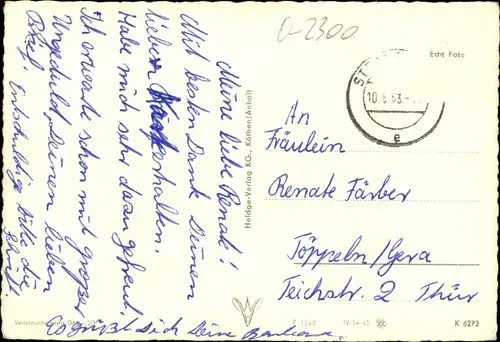 Meine liebe Renate!
Mit besten Dank Deinen
lieben Karte erhalten.
Habe mich sehr darn gefreut.
Ich erwarte schon mit großer
Ungeduld, Deinen lieben
Brief. Entschuldige bitte die
Schrift
Es grüßt Dich Deine Barbara
0-2300
Echt Foto
ST
10.8.63.
e
An
Fräulein
Renate Färber
Töppeln/Gera
Teichstr. 2 Thür
Heldge-Verlag KG., Köthen/Anhalt
Verbraucherpreis
IV-14-45
K 6272